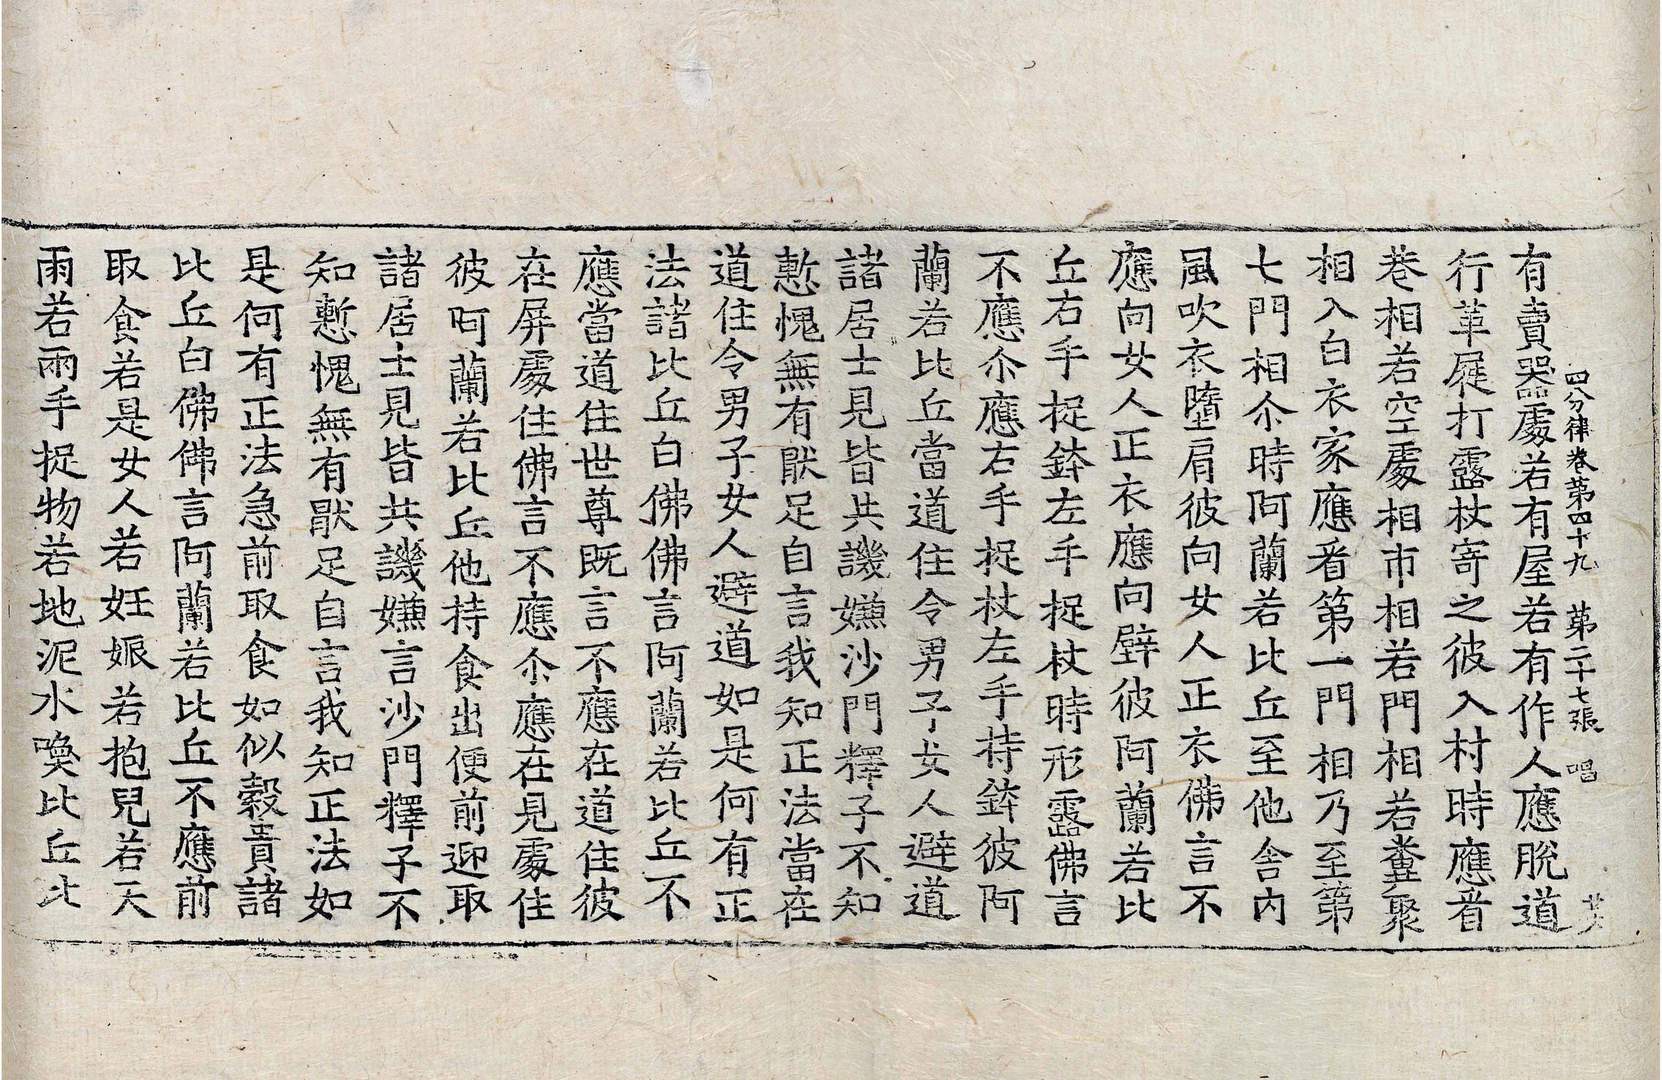 四分律卷第四十九 第二十七張 唱
廿六
有賣器處若有屋若有作人應脫道
行革屣打露杖寄之彼入村時應看
巷相若空處相市相若門相若糞聚
相入白衣家應看第一門相乃至第
七門相尒時阿蘭若比丘至他舍內
風吹衣墮肩彼向女人正衣佛言不
應向女人正衣應向壁彼阿蘭若比
丘右手捉鉢左手捉杖時形露佛言
不應尒應右手捉杖左手持鉢彼阿
蘭若比丘當道住令男子女人避道
諸居士見皆共譏嫌沙門釋子不知
慙愧無有猒足自言我知正法當在
道住令男子女人避道如是何有正
法諸比丘白佛佛言阿蘭若比丘不
應當道住世尊既言不應在道住彼
在屏處住佛言不應尒應在見處住
彼阿蘭若比丘他持食出便前迎取
諸居士見皆共譏嫌言沙門釋子不
知慙愧無有猒足自言我知正法如
是何有正法急前取食如似穀貴諸
比丘白佛佛言阿蘭若比丘不應前
取食若是女人若妊娠若抱兒若天
雨若兩手捉物若地泥水喚比丘比